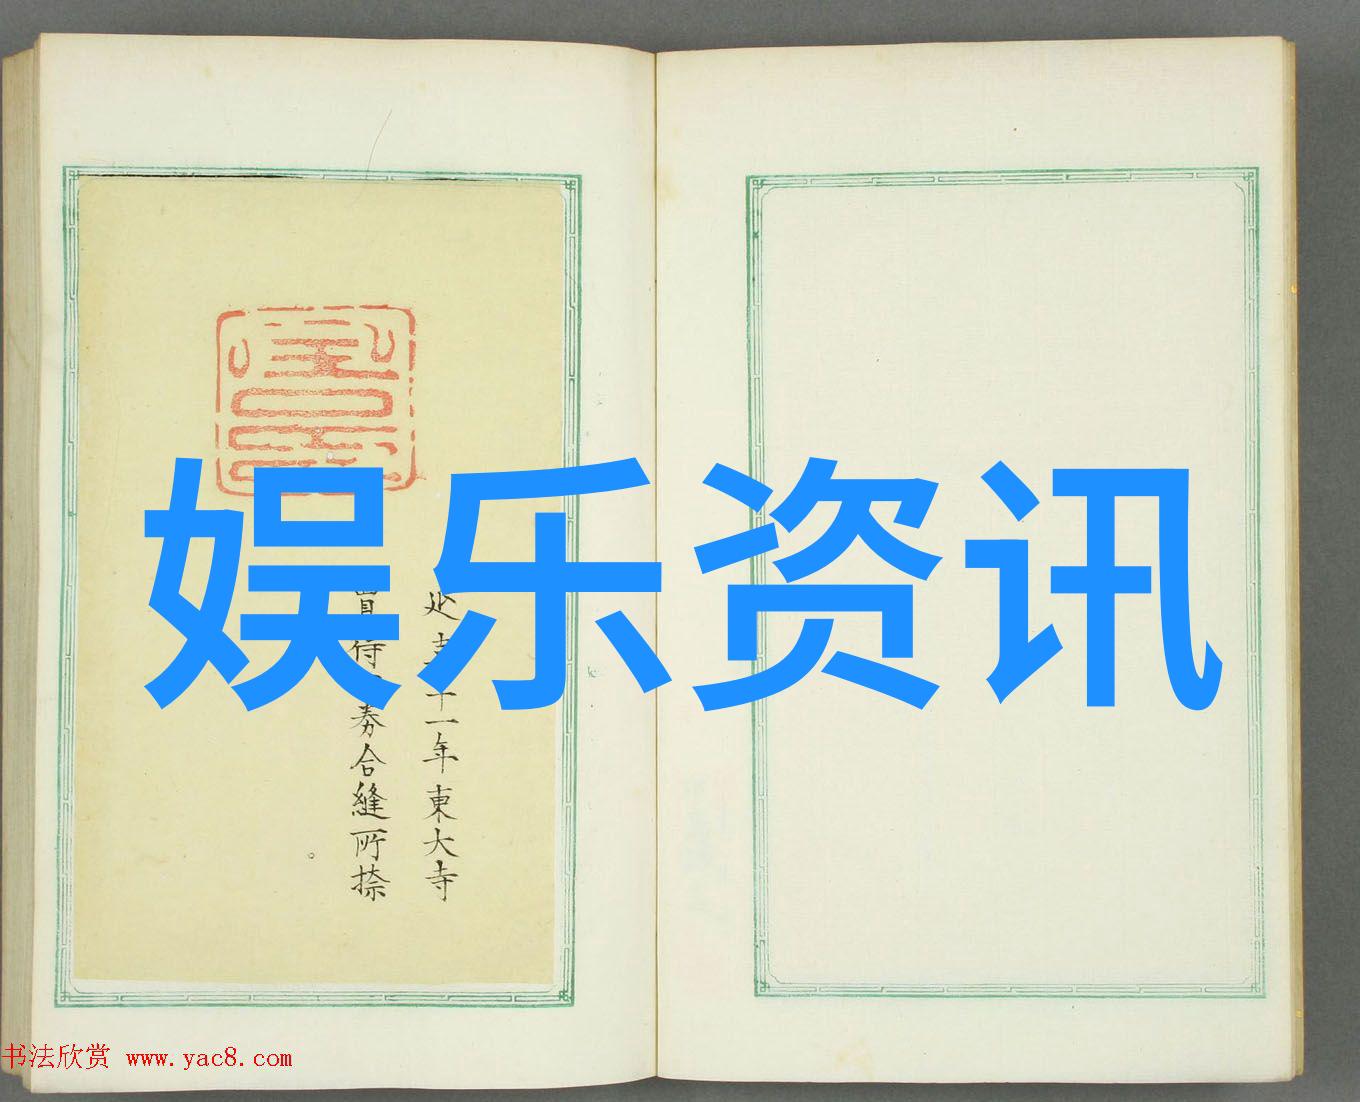 娱乐资讯
延喜十一年東大寺
券合縫所捺
书法欣赏 www.yac8.com